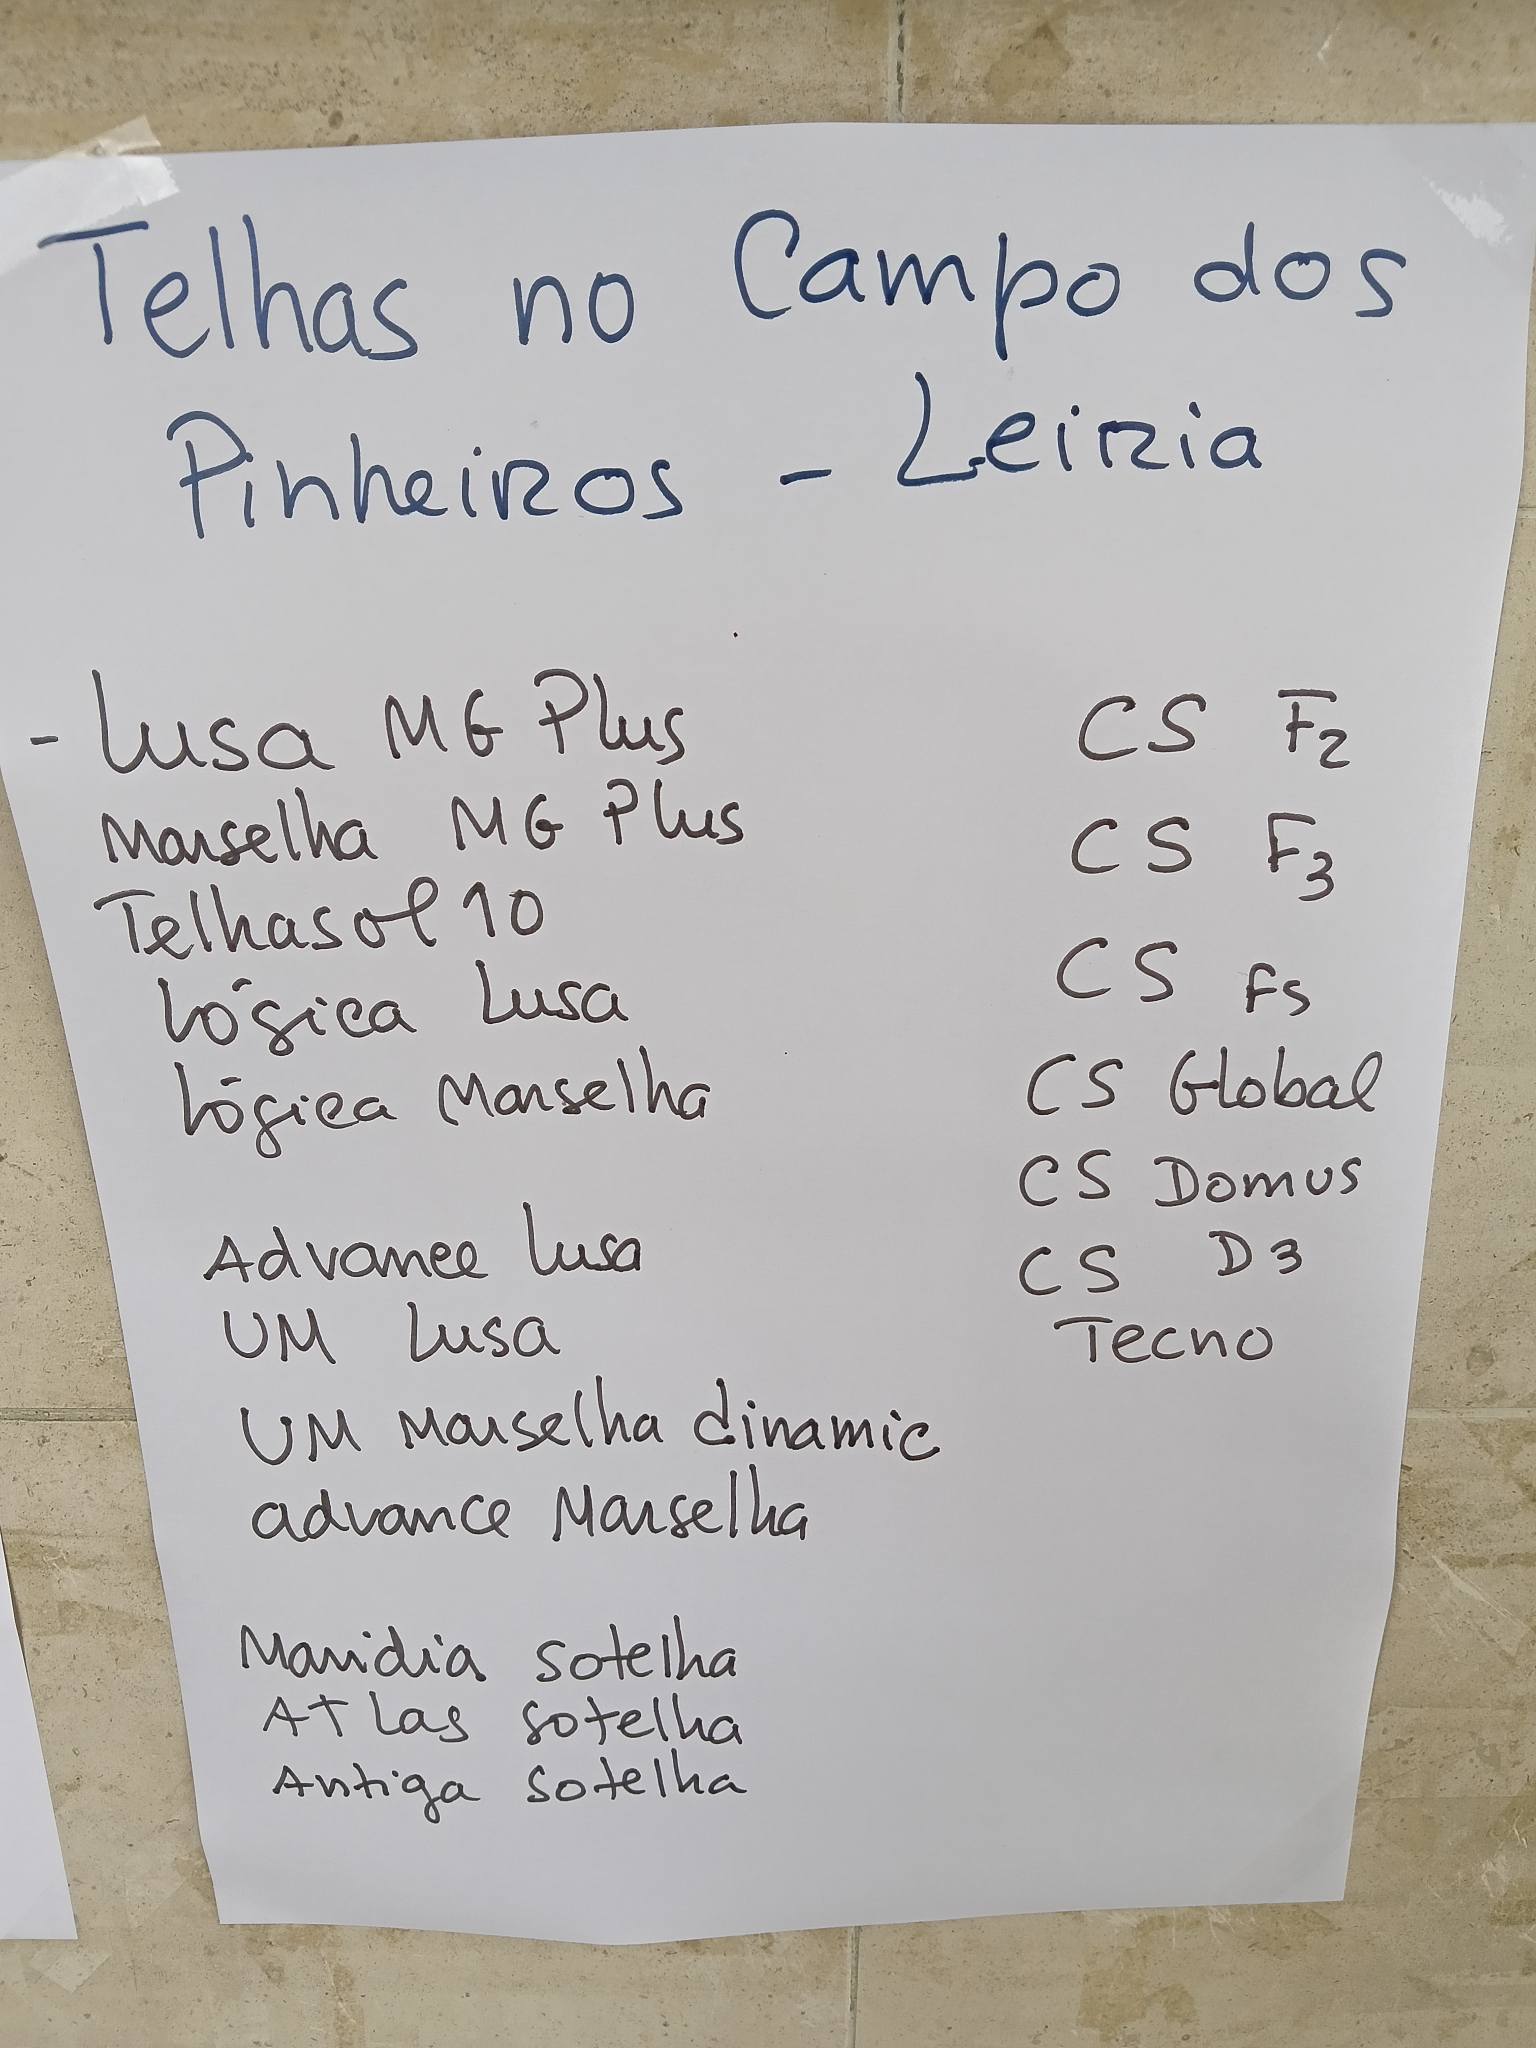 Telhas no Campo dos
Pinheiros - Leiria
- Lusa MG Plus
Marselha MG Plus
Telhasol 10
Lógica Lusa
Lógica Marselha
Advance Lusa
UM Lusa
UM Marselha dinamic
advance Marselha
Maridia sotelha
Atlas sotelha
Antiga sotelha
CS F2
CS F3
CS FS
CS Global
CS Domus
CS D3
Tecno